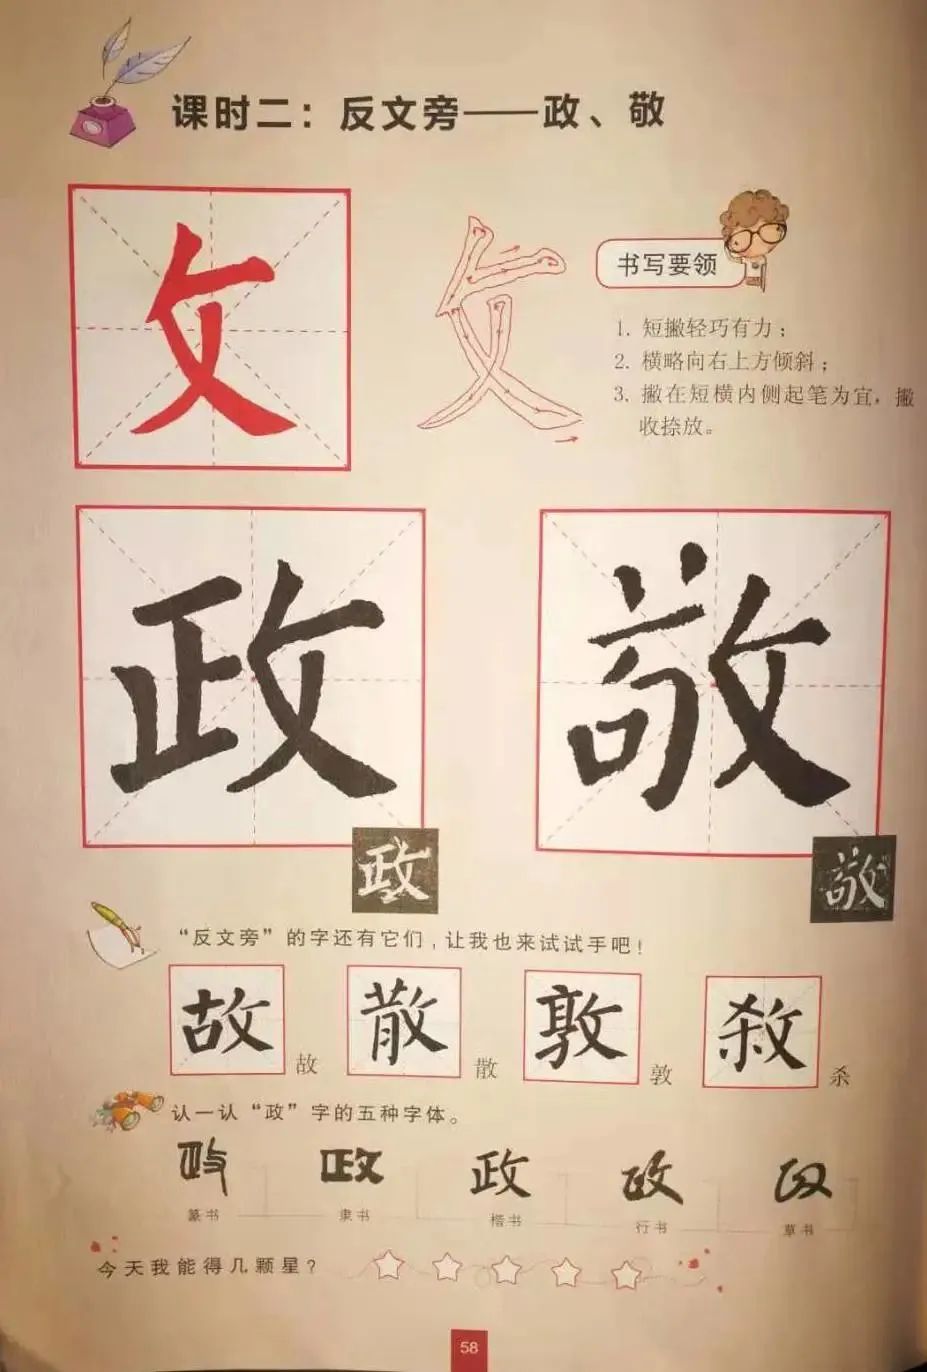 课时二：反文旁——政、敬
攵
书写要领
1. 短撇轻巧有力；
2. 横略向右上方倾斜；
3. 撇在短横内侧起笔为宜，撇
收捺放。
政 敬
政 敬
“反文旁”的字还有它们，让我也来试试手吧！
故 故 散 散 敦 敦 杀 杀
认一认“政”字的五种字体。
政 政 政 政 政
篆书 隶书 楷书 行书 草书
今天我能得几颗星？
58